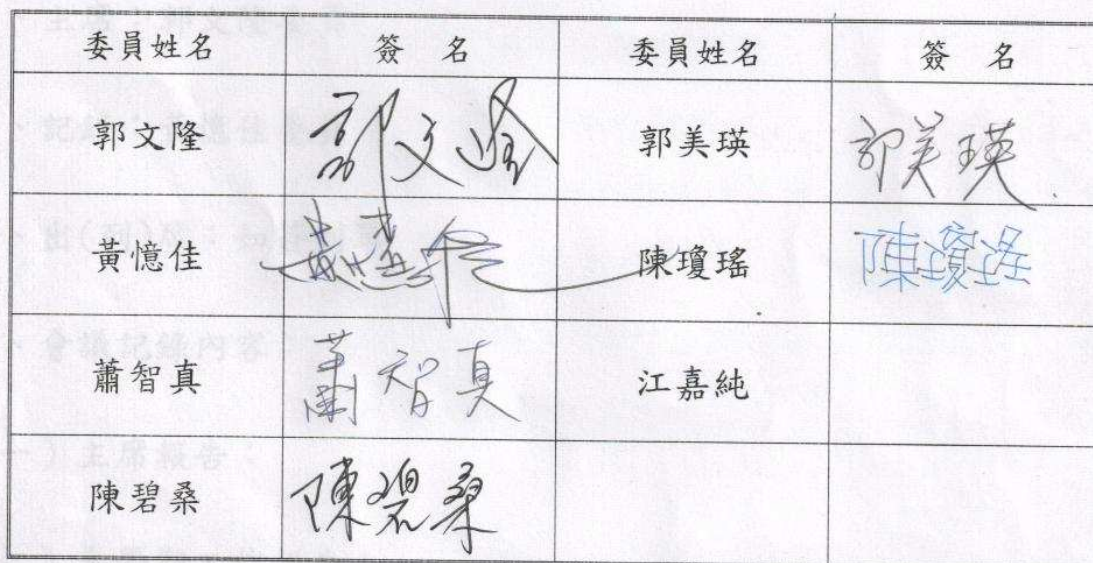 委員姓名 簽 名 委員姓名 簽 名
郭文隆 郭文隆 郭美瑛 郭美瑛
黃憶佳 黃憶佳 陳瓊瑤 陳瓊瑤
蕭智真 蕭智真 江嘉純
陳碧桑 陳碧桑